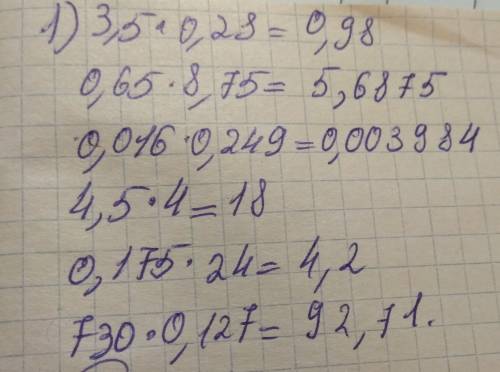 1) 3,5·0,28=0,98
0,65·8,75=5,6875
0,016·0,249=0,003984
4,5·4=18
0,175·24=4,2
730·0,127=92,71.